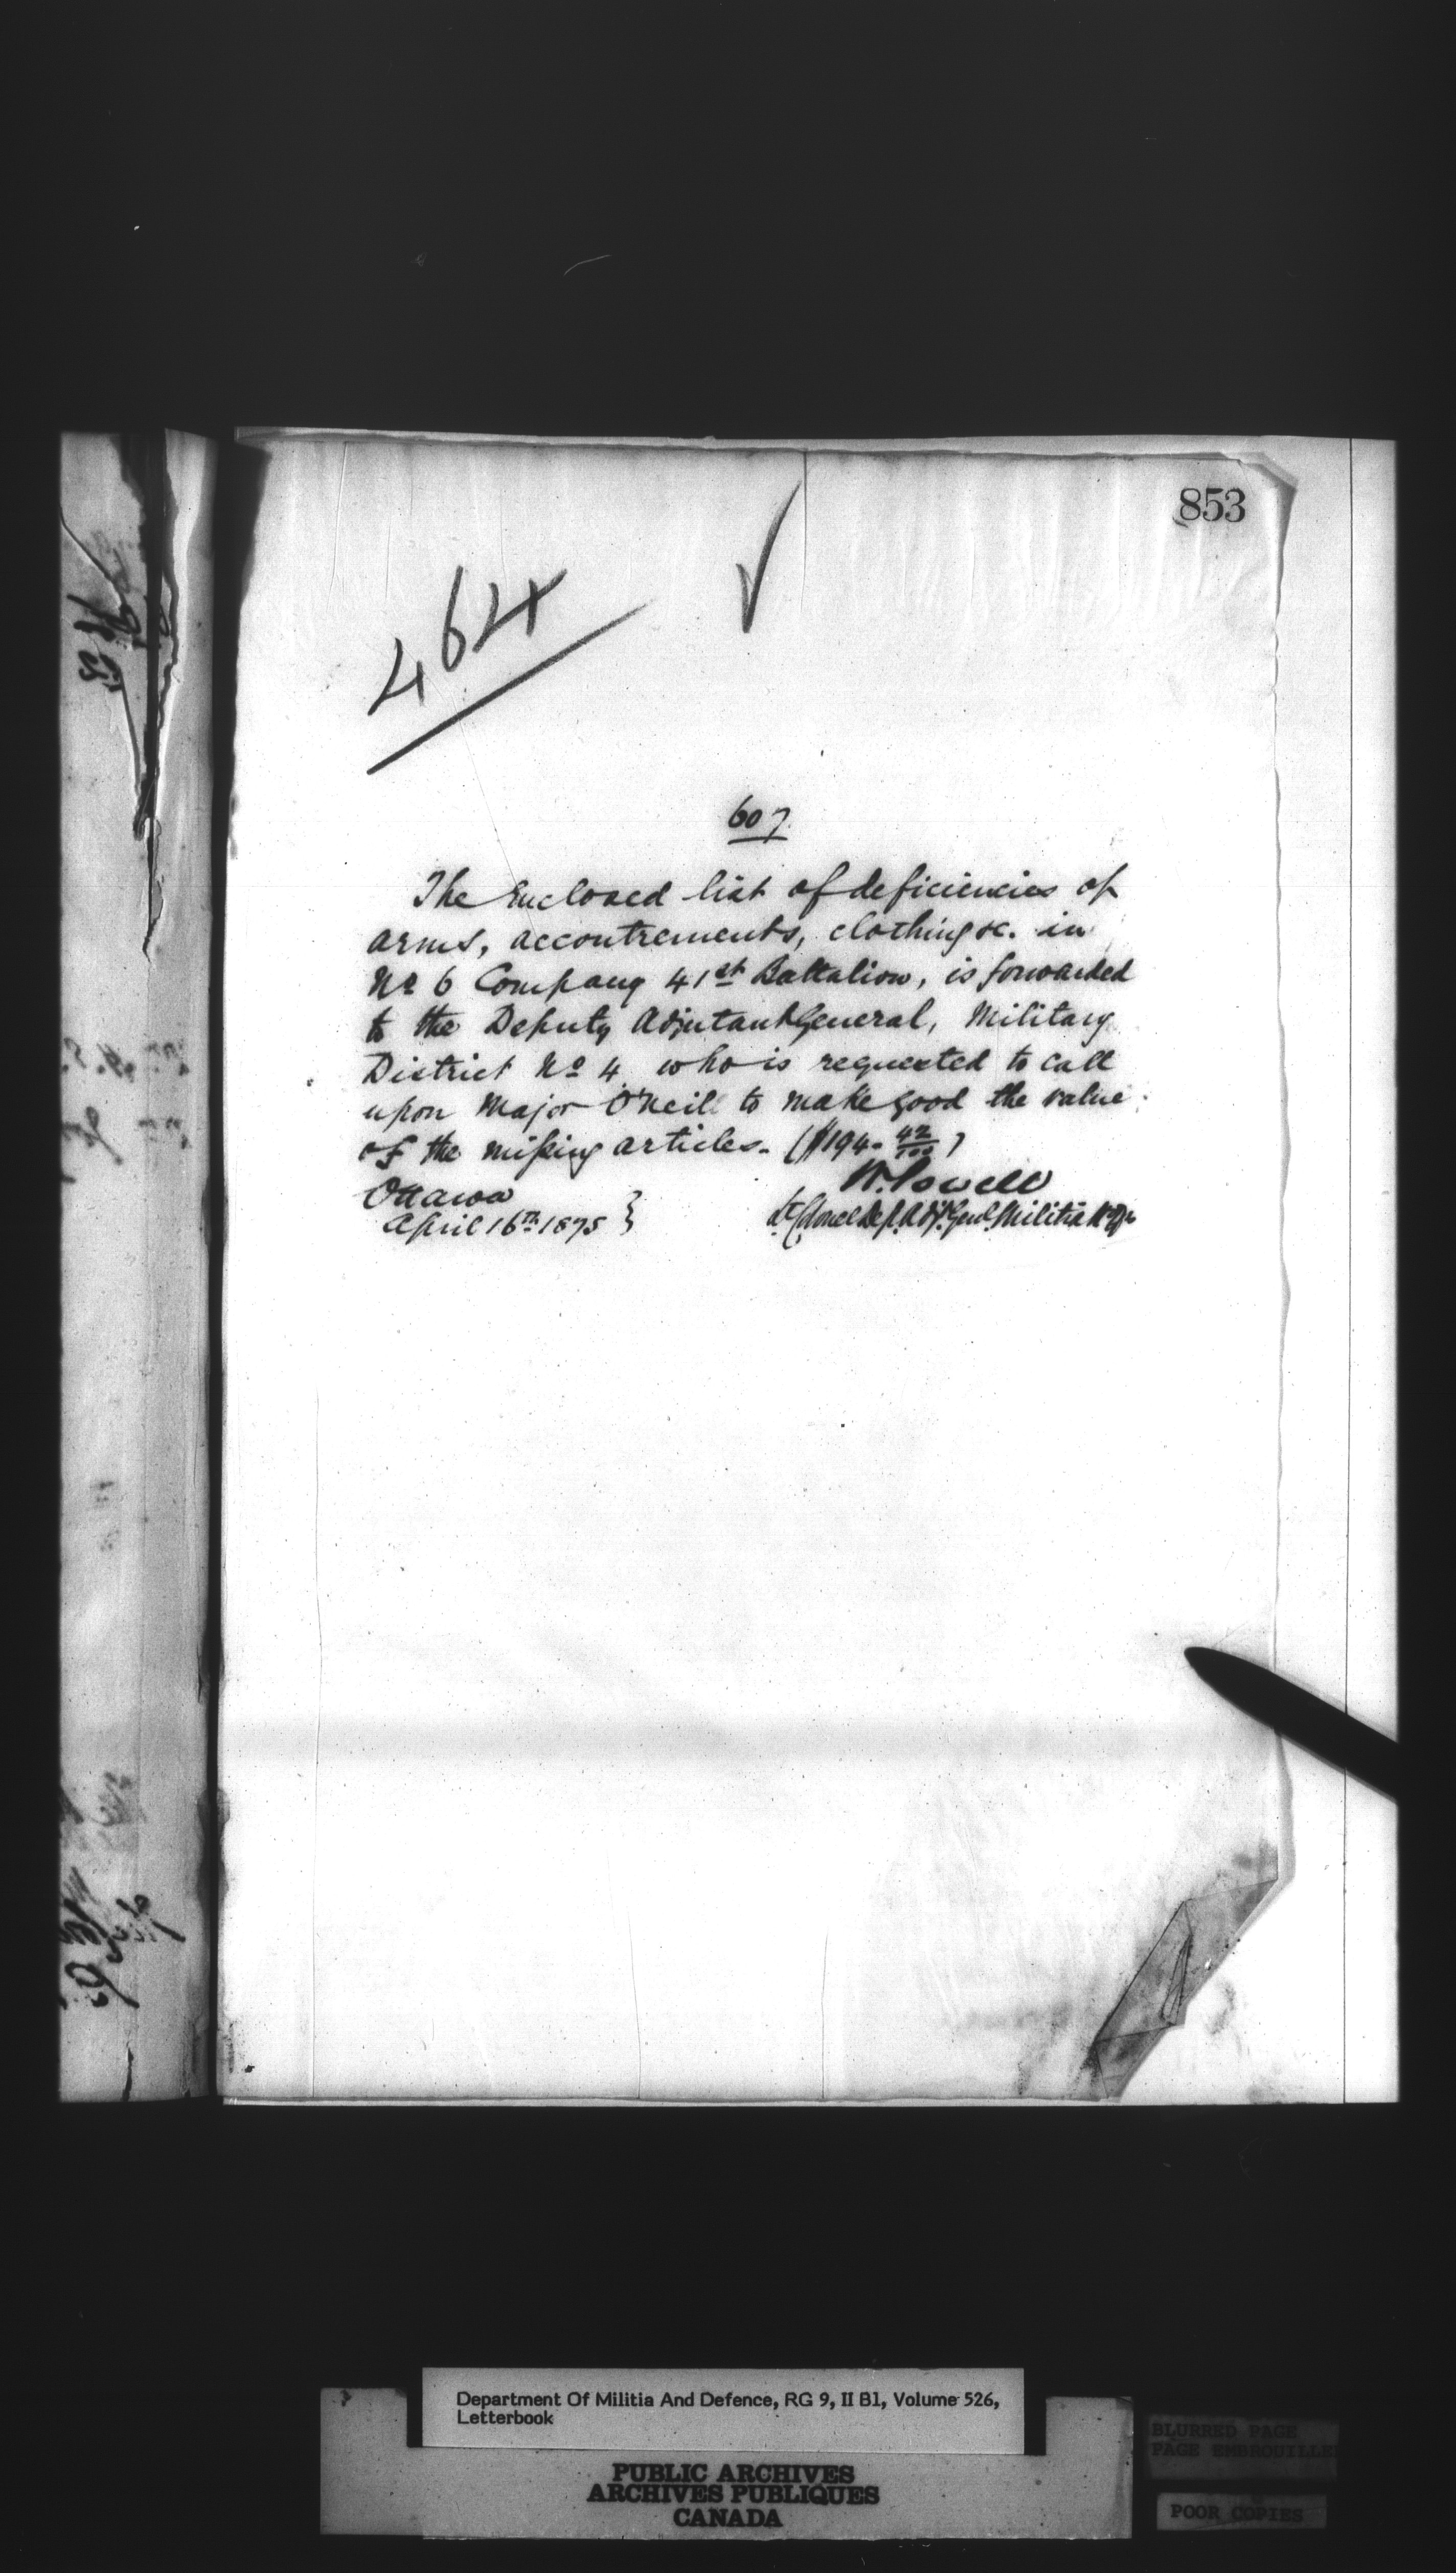 853
464
607
The Enclosed list of deficiencies of
arms, accoutrements, clothing &c. in
No 6 Company 41st Battalion, is forwarded
to the Deputy Adjutant General, Military
District No 4 who is requested to call
upon Major O'Neill to make good the value
of the missing articles. ($194. 42/100)
W. Powell
Ottawa
April 16th 1875 }
Lt. Colonel Dep. Adjt. Genl. Militia
Department Of Militia And Defence, RG 9, II B1, Volume 526,
Letterbook
PUBLIC ARCHIVES
ARCHIVES PUBLIQUES
CANADA
BLURRED PAGE
PAGE EMBROUILLEE
POOR COPIES